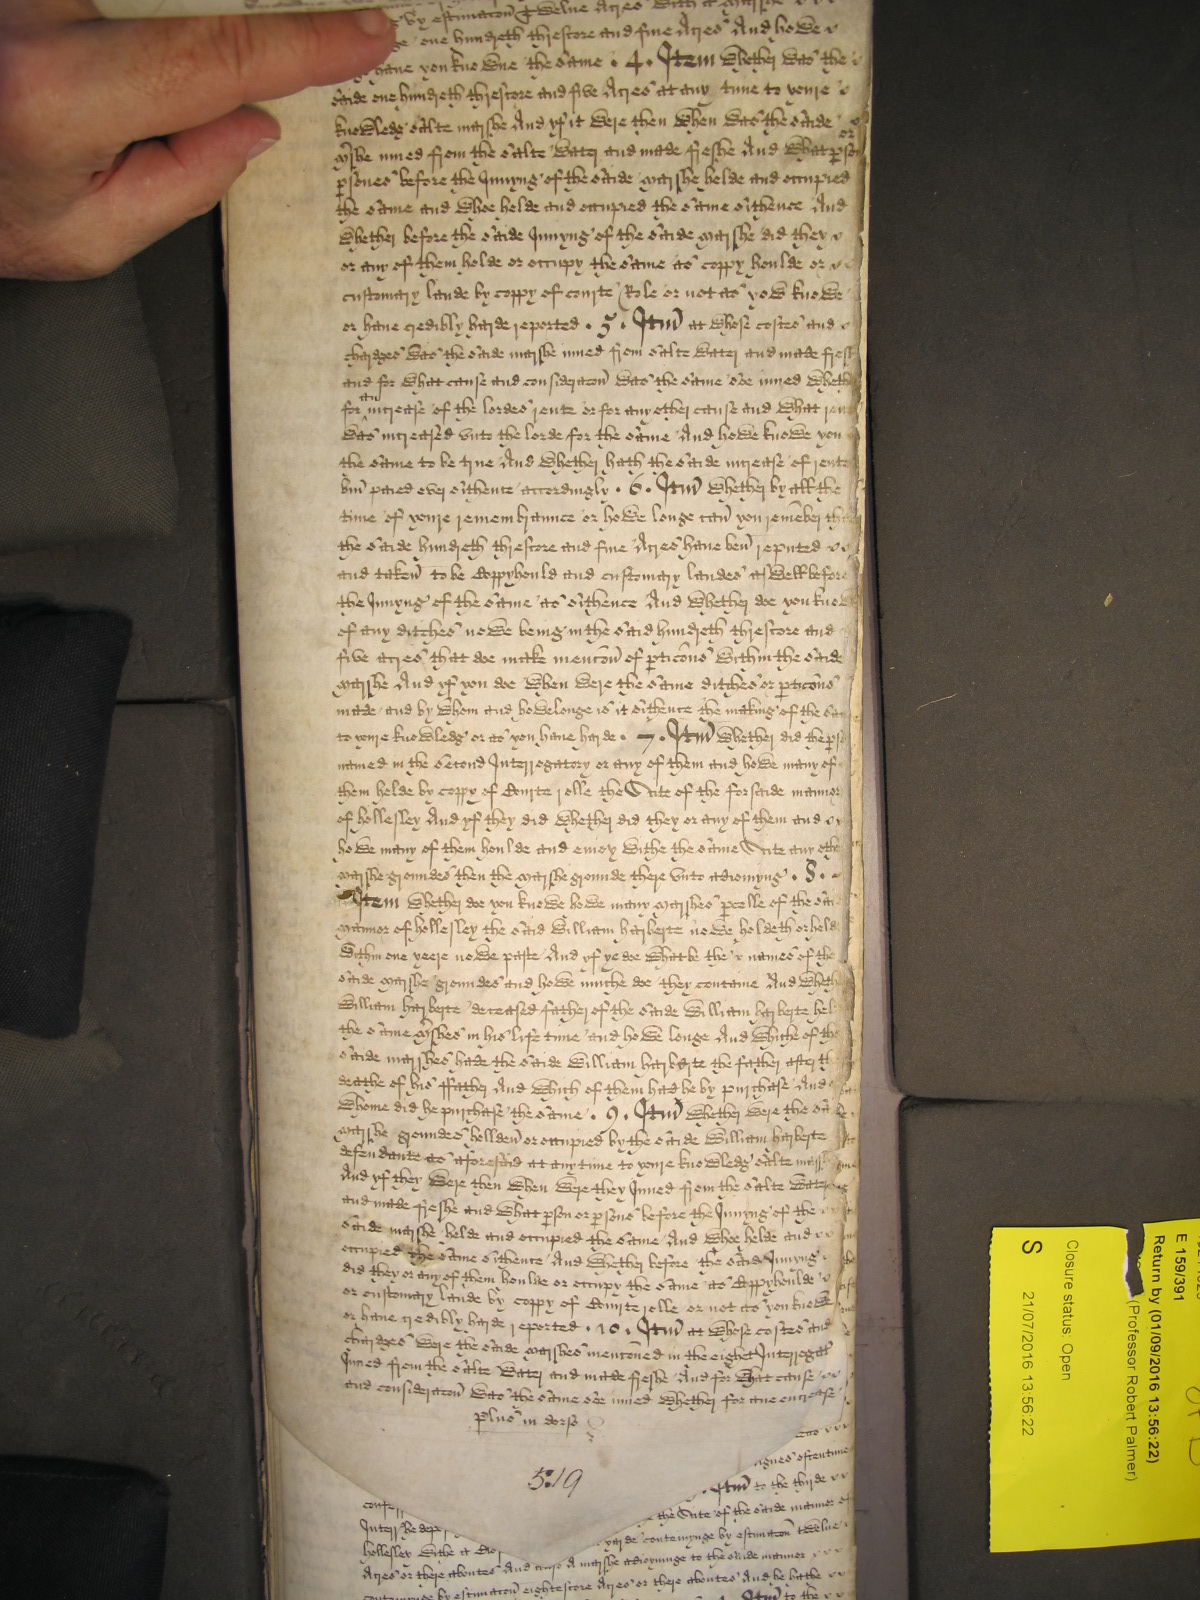 by estimacōn Twelve Acres with a marshe
one hundreth threscore and five Acres And howe
have you knowne the same . 4 . Item Whether was the
saide one hundreth threscore and five Acres at any time to youre
knowledg salte marshe And yf it were then when was the saide
mʳshe inned from the salte water and made freshe And what pson or
psones before the Innyng of the saide marshe helde and occupied
the same and whoe helde and occupied the same sithence And
Whether before the saide Innyng of the saide marshe did they
or any of them holde or occupy the same as coppy houlde or
customary lande by coppy of courte Role or not as yow knowe
or have credibly harde reported . 5 . Itm̄ at whose costes and
chardges was the saide marshe inned from salte water and made fresh
and for what cause and consideracōn was the same soe inned whether
for an increase of the lordes rente or for any other cause and what
was increased unto the lorde for the same And howe knowe you
the same to be true And whether hath the saide increase of rente
bin paied ever sithence accordingly . 6 . Itm̄ whether by all the
time of youre remembraunce or howe longe can you remēber that
the saide hundreth threscore and five Acres have ben reputed
and taken to be Coppyhould and customary landes aswell before
the Innyng of the same as sithence And whether doe you knowe
of any ditches nowe being in the said hundreth threscore and
five acres that doe make mencōn of pticōns within the saide
marshe And yf you doe when were the same ditches or pticōns
made and by whom and howe longe is it sithence the making of the
to youre knowledg or as you have harde . 7 . Itm̄ Whether did the
named in the second Interrogatory or any of them and howe many of
them helde by coppy of Courte rolle the Scite of the forsaide mannor
of hollesley And yf they did whether did they or any of them and
howe many of them houlde and enioy withe the same Scite any othe
marshe groundes then the marshe grounde there unto adioinyng . 8 .
Item Whether doe you knowe howe many marshes pcelle of the said
mannor of hollesley the said William harberte nowe holdeth or helde
within one yeere nowe paste And yf ye doe what be the names of the
saide marshe groundes and howe muche doe they containe And Whether
William harberte deceased father of the saide William harberte helde
the same mʳshes in his life time and howe longe And Whiche of the
saide marshes hade the saide William harberte the father after the
deathe of his ffather And which of them had he by purchase And of
whome did he purchase the same . 9 . Itm̄ Whether were the said
marshe groundes hellden or occupied by the saide William harberte
defendante as aforesaid at any time to youre knowledg salte marshe
And yf they were then when were they Inned from the salte water
and made freshe and what pson or psons before the Innyng of the
saide marshe helde and occupied the same And whoe helde and
occupied the same sithence And whether before the said Innyng
did they or any of them houlde or occupy the same as Coppyhoulde
or customary lande by coppy of Courte rolle or not as you knowe
or have credibly harde reported . 10 . Itm̄ at whose costes and
chardges were the saide marshes mencōned in the eight Interrogat
Inned from the salte water and made freshe And for what cause
and consideracōn was the same soe inned whether for ane encrease
plus in dorso
519
ofentime
Itm̄ to the thirde
the Scite of the saide mannor of
hollesley withe a contemynge by estimacōn twelve
Acres or there aboutes And a marshe adioynynge to the saide mannor
contemynge by estimacōn eightescore Acres or there aboutes And he hathe
Itm̄ to the
E 159/391
Return by (01/09/2016 13:56:22)
(Professor Robert Palmer)
Closure status: Open
S 21/07/2016 13:56:22